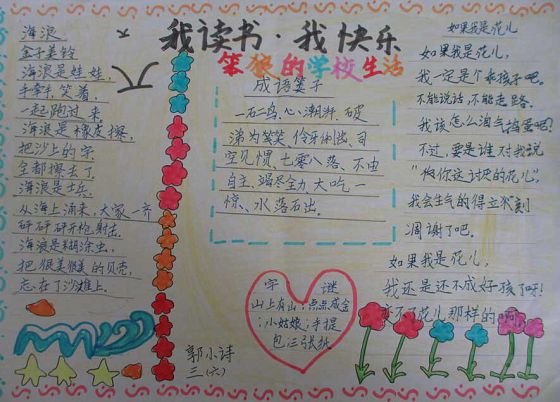 我读书·我快乐
笨狼的学校生活
海浪
金子美铃
海浪是娃娃,
手牵手,笑着,
一起跑过来。
海浪是橡皮擦,
把沙上的字
全都擦去了。
海浪是士兵,
从海上涌来,大家一齐
砰砰砰开枪射击。
海浪是糊涂虫,
把很美很美的贝壳,
忘在了沙滩上。
成语篓子
一石二鸟、心潮
涕为笑、伶牙俐齿、司
空见惯、七零八落、不由
自主、竭尽全力、大吃一
惊、水落石出。
字 谜
山上有山;点点成金
;小姑娘;手提
包;三张纸
郭小诗
三(六)
如果我是花儿
如果我是花儿,
我一定是个乖孩子吧。
不能说话,不能走路,
我该怎么淘气捣蛋呢?
不过,要是谁对我说
"你这讨厌的花儿",
我会生气的得立刻
凋谢了吧。
如果我是花儿,
我还是还不成好孩子呀!
变不了花儿那样的啊